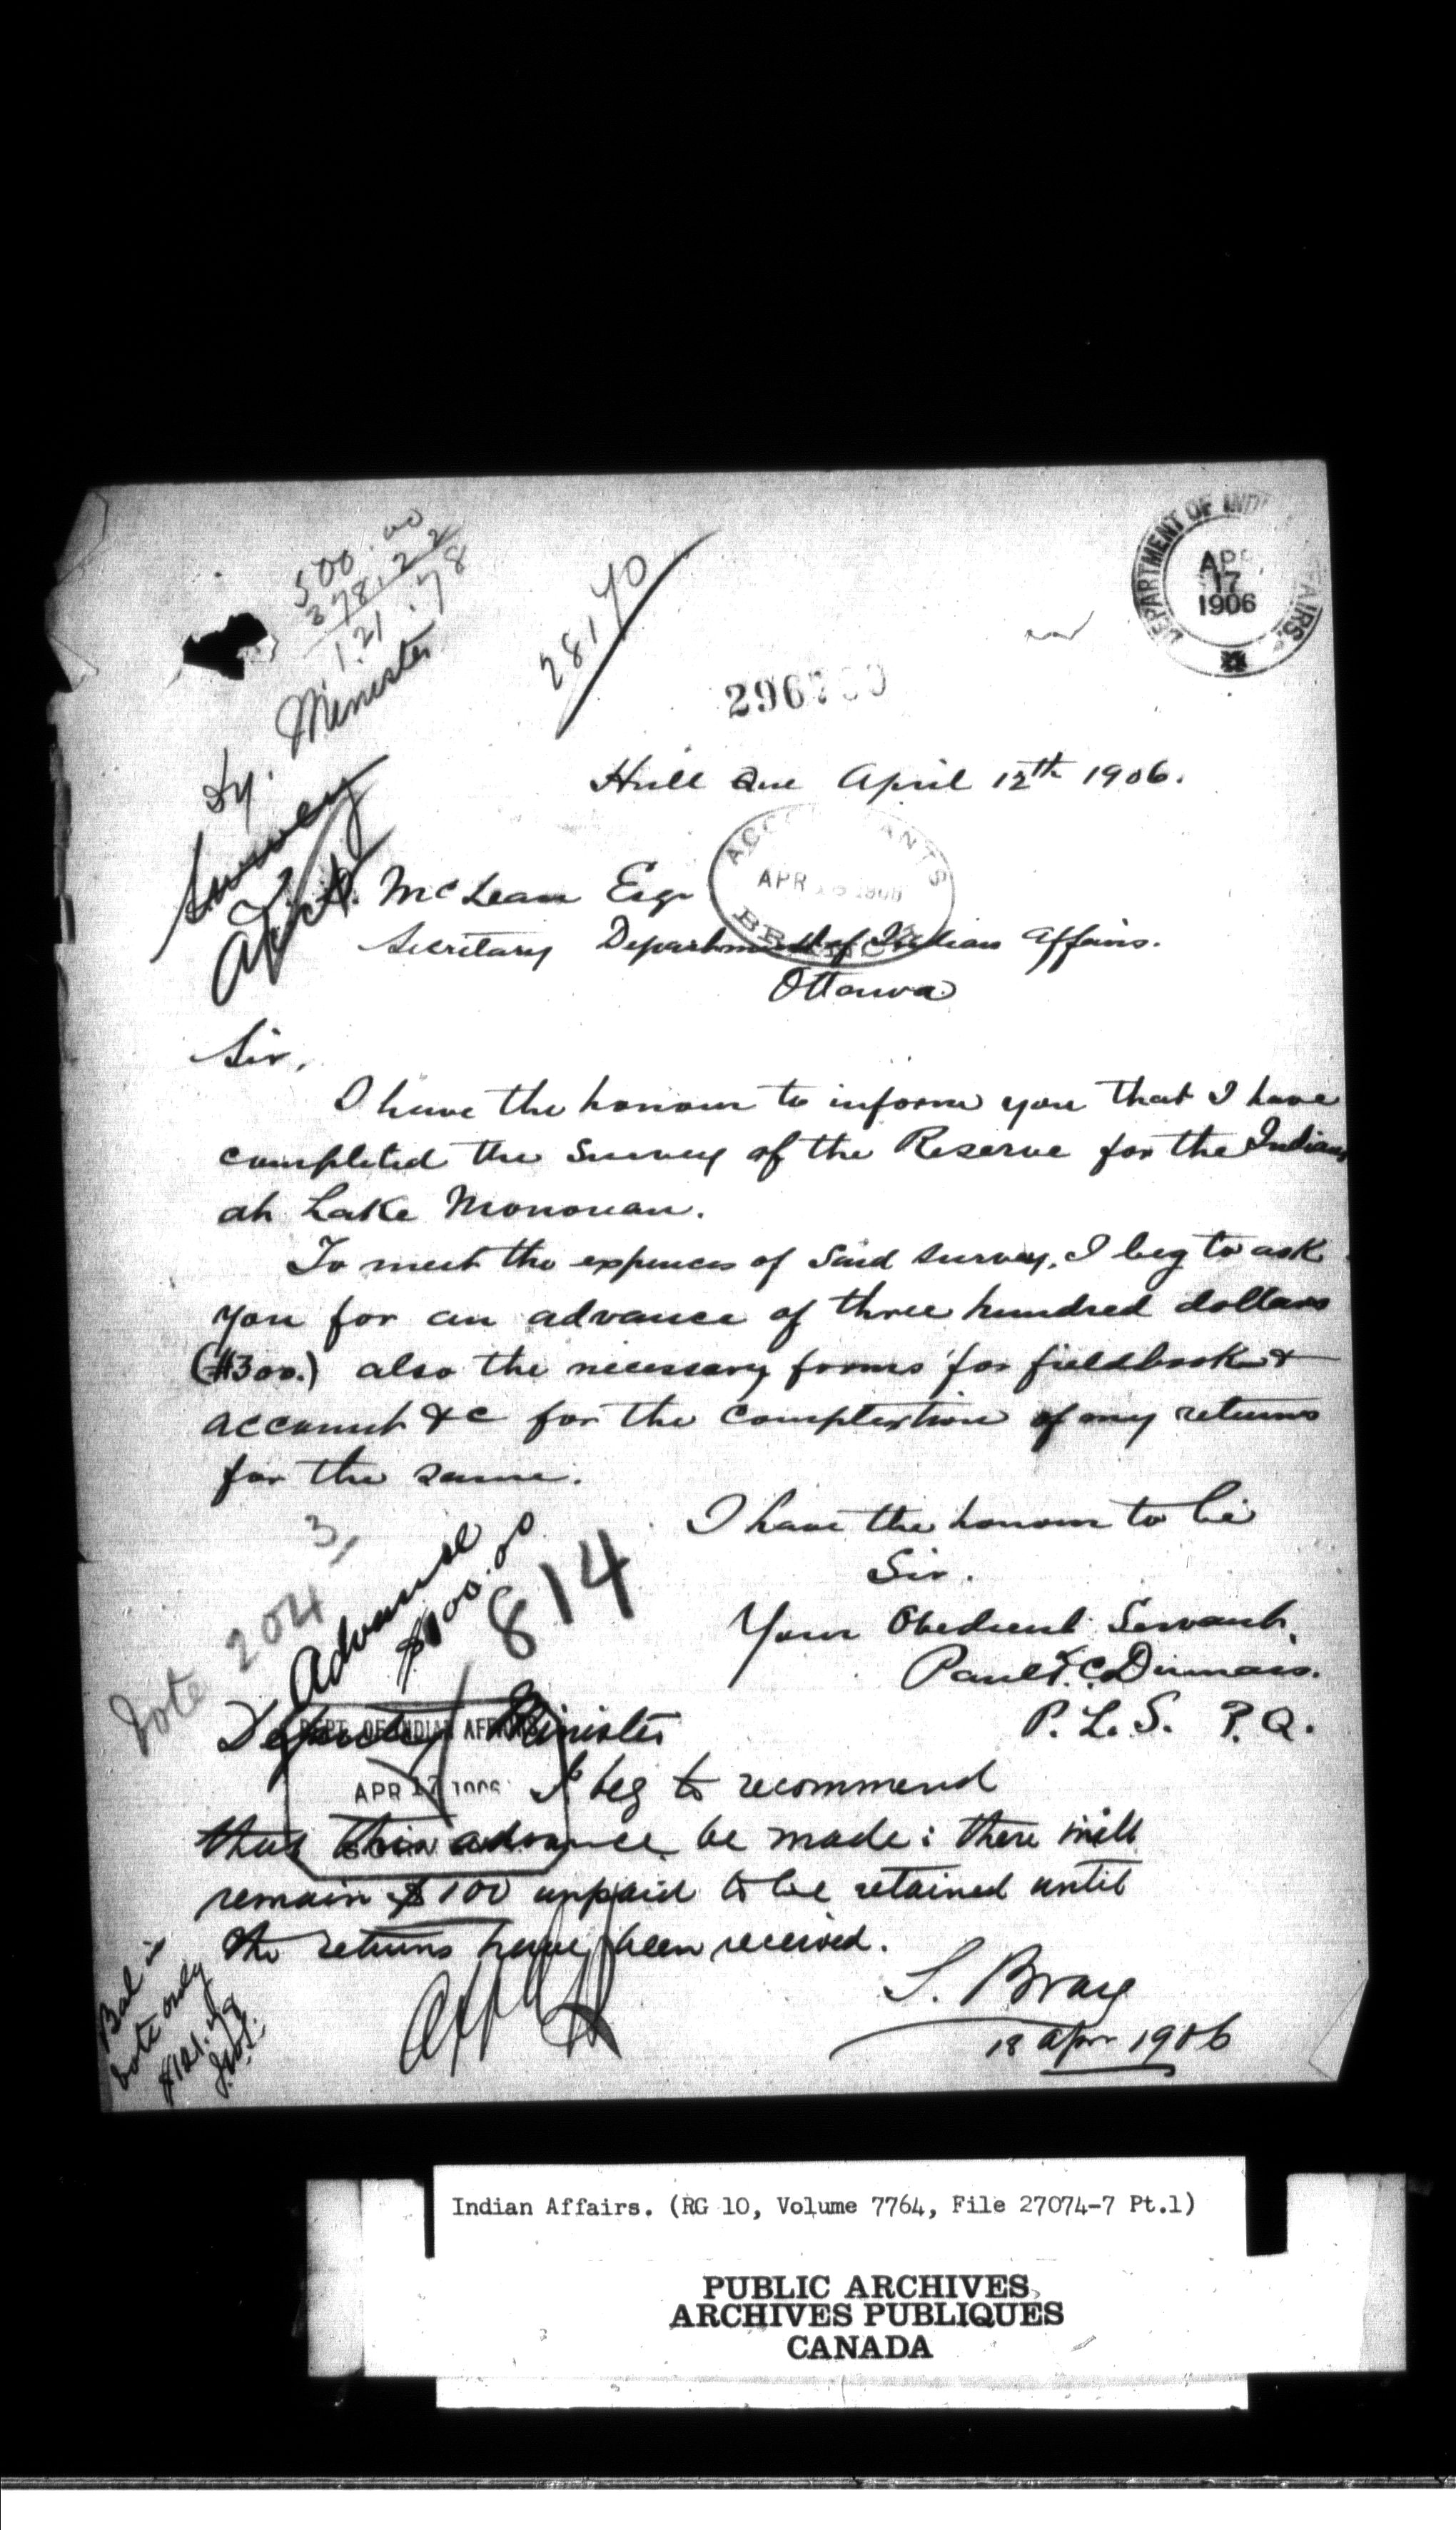 500.00
378.22
121.78
Dy. Minister
Survey
28170
DEPARTMENT OF INDI AFFAIRS.
APR
17
1906
Hull Que April 12th 1906.
ACCOUNTANTS
APR 1906
BRANCH
McLean Esq
Secretary Department of Indian Affairs.
Ottawa
Sir,
I have the honour to inform you that I have
completed the Survey of the Reserve for the Indians
at Lake Monouan.
To meet the expences of said survey, I beg to ask
you for an advance of three hundred dollars
($300.) also the necessary forms for fieldbook &
account &c for the completion of my returns
for the same.
I have the honour to be
Sir.
Your Obedient Servant,
Paul T. C. Dumais.
P. L. S. P. Q.
Vote 204
3
Advance
$100.00
814
DEPT. OF INDIAN AFFAIRS
APR 17 1906
Deputy Minister
I beg to recommend
that this advance be made: there will
remain $100 unpaid to be retained until
the returns have been received.
S. Bray
18 Apr 1906
Bal in
vote only
$121.78
Indian Affairs. (RG 10, Volume 7764, File 27074-7 Pt.1)
PUBLIC ARCHIVES
ARCHIVES PUBLIQUES
CANADA